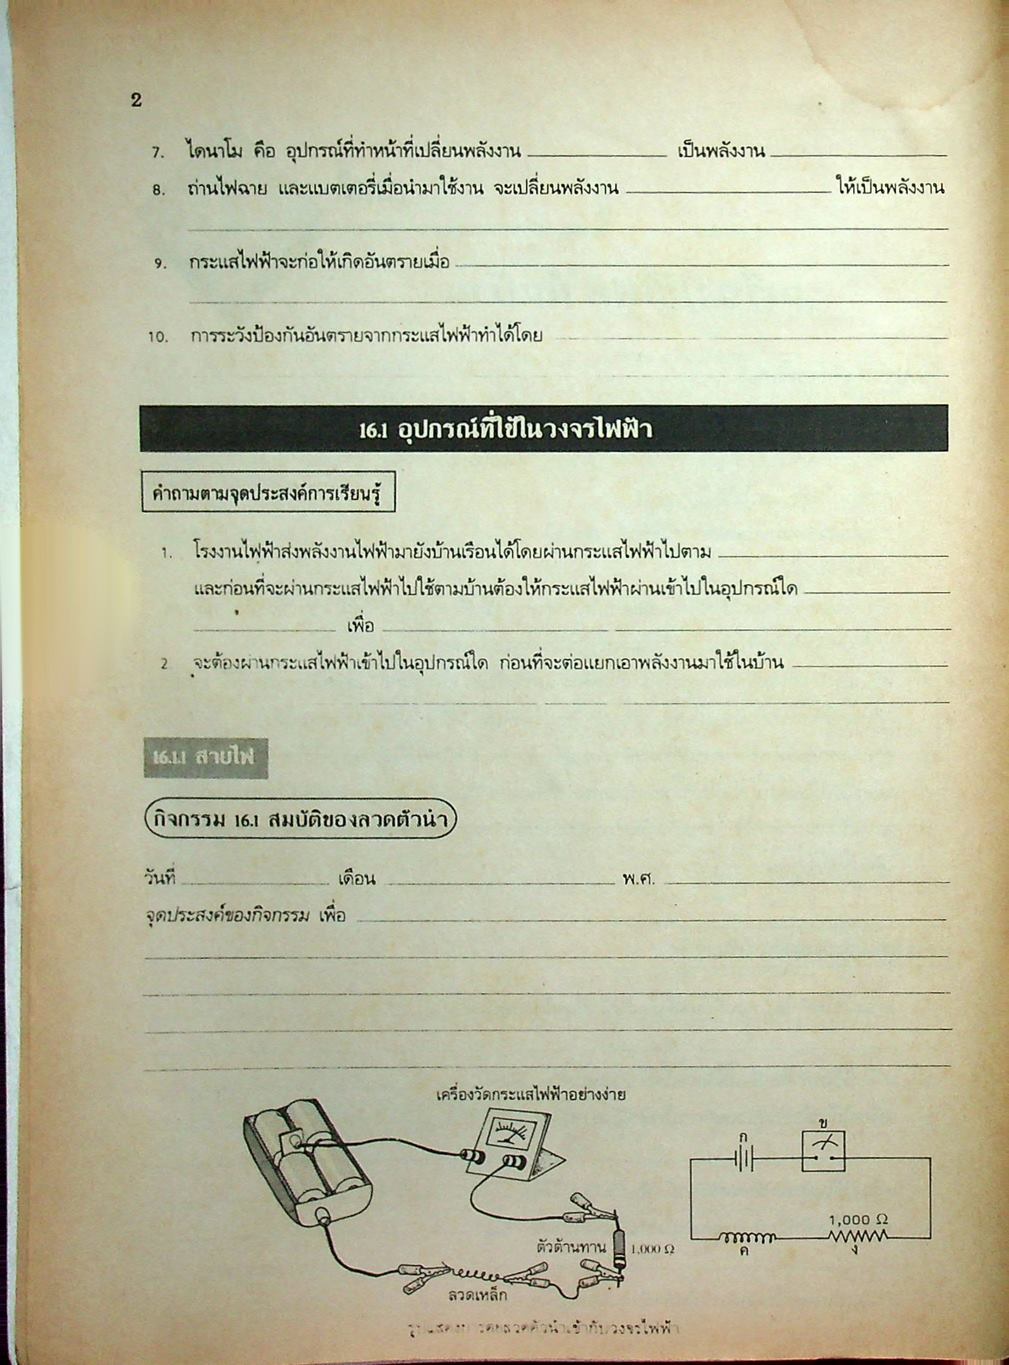 2
7. ไดนาโม คือ อุปกรณ์ที่ทำหน้าที่เปลี่ยนพลังงาน เป็นพลังงาน
8. ถ่านไฟฉาย และแบตเตอรี่เมื่อนำมาใช้งาน จะเปลี่ยนพลังงาน ให้เป็นพลังงาน
9. กระแสไฟฟ้าจะก่อให้เกิดอันตรายเมื่อ
10. การระวังป้องกันอันตรายจากกระแสไฟฟ้าทำได้โดย
16.1 อุปกรณ์ที่ใช้ในวงจรไฟฟ้า
คำถามตามจุดประสงค์การเรียนรู้
1. โรงงานไฟฟ้าส่งพลังงานไฟฟ้ามายังบ้านเรือนได้โดยผ่านกระแสไฟฟ้าไปตาม
และก่อนที่จะผ่านกระแสไฟฟ้าไปใช้ตามบ้านต้องให้กระแสไฟฟ้าผ่านเข้าไปในอุปกรณ์ใด
เพื่อ
2 จะต้องผ่านกระแสไฟฟ้าเข้าไปในอุปกรณ์ใด ก่อนที่จะต่อแยกเอาพลังงานมาใช้ในบ้าน
16.1.1 สายไฟ
กิจกรรม 16.1 สมบัติของลวดตัวนำ
วันที่ เดือน พ.ศ.
จุดประสงค์ของกิจกรรม เพื่อ
เครื่องวัดกระแสไฟฟ้าอย่างง่าย
ก ข
1,000 Ω
ค ง
ตัวต้านทาน 1,000 Ω
ลวดเหล็ก
ลวดตัวนำเข้ากับวงจรไฟฟ้า